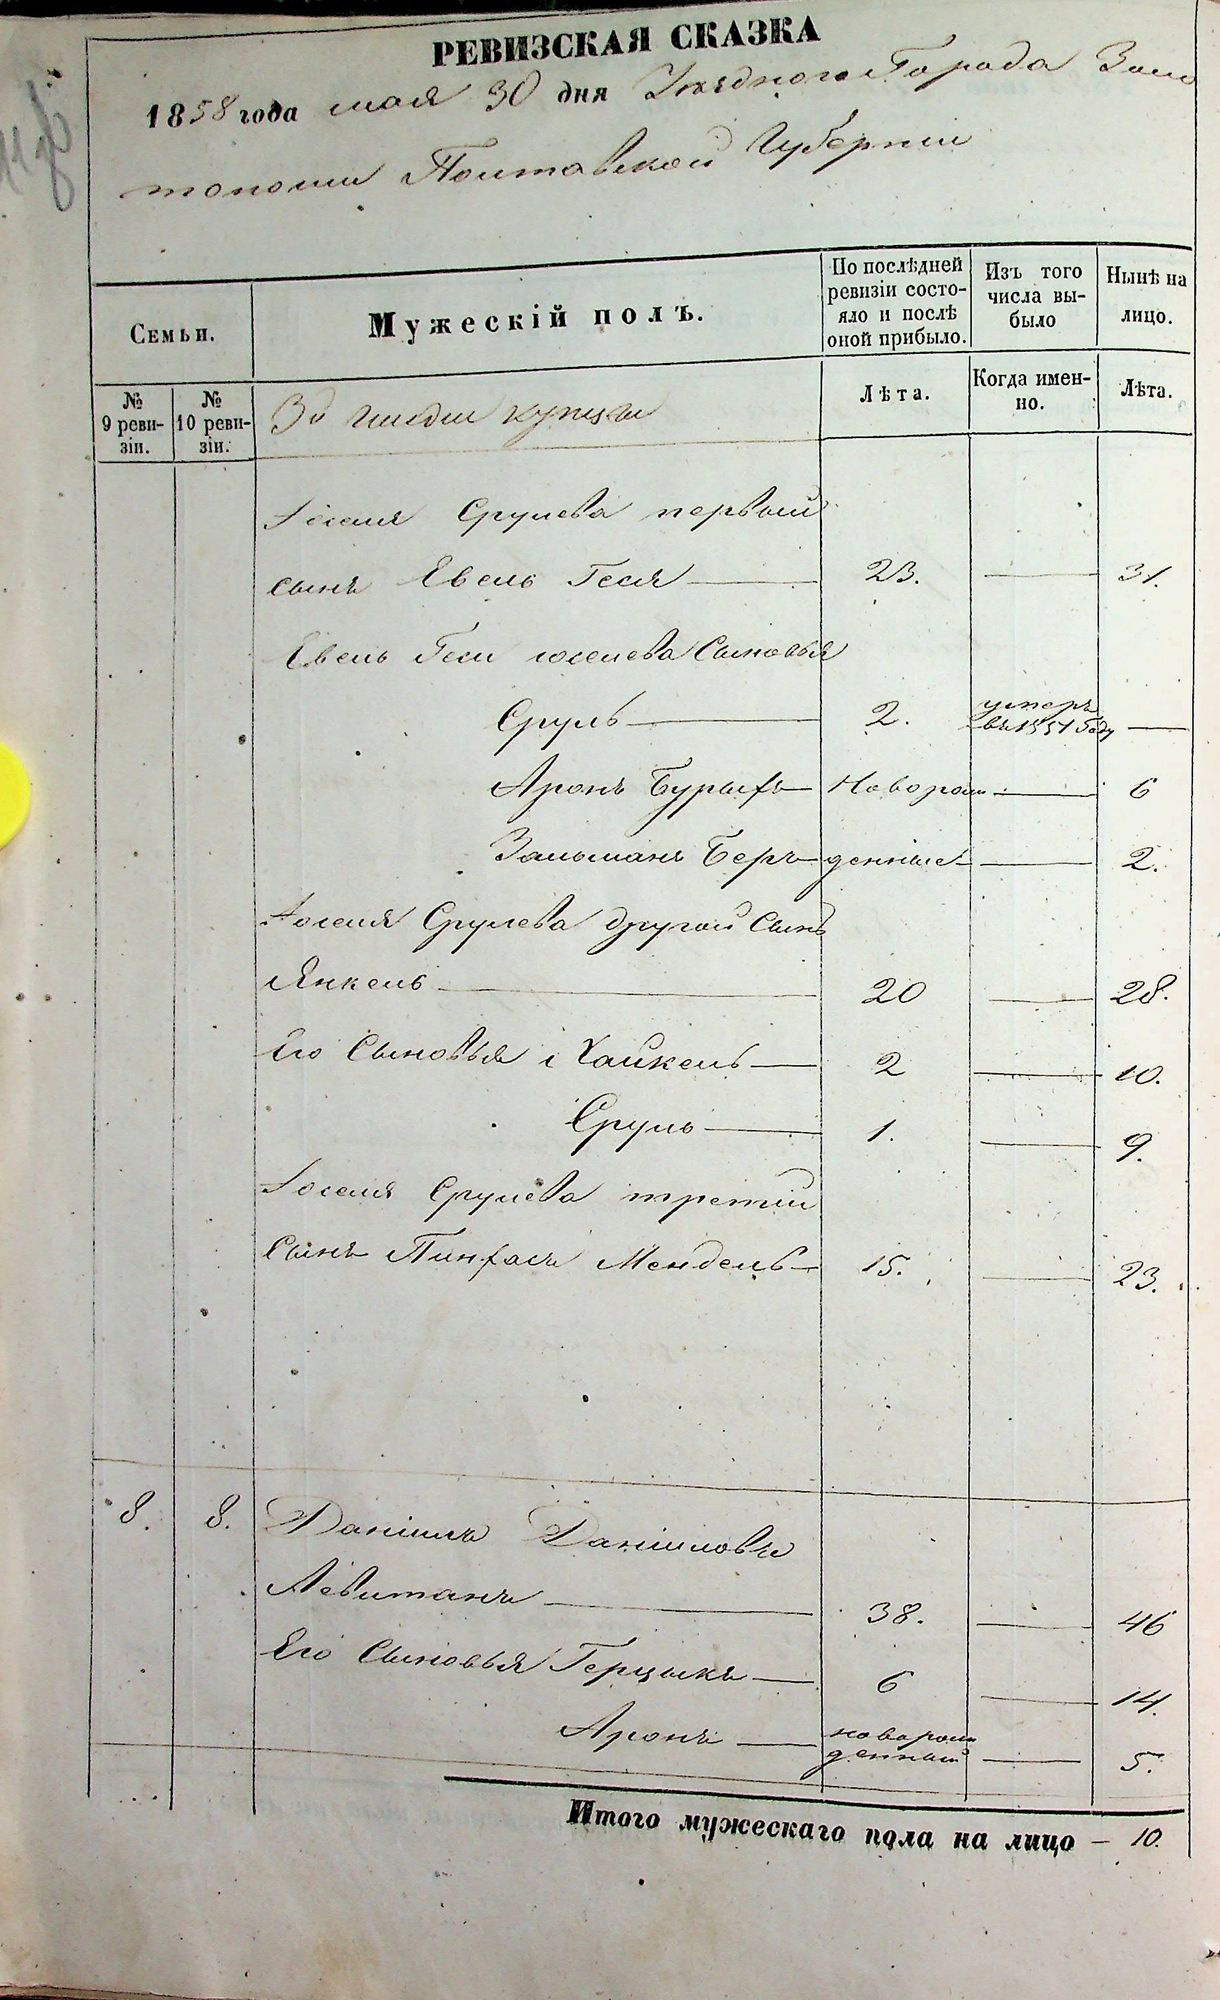 РЕВИЗСКАЯ СКАЗКА
1858 года мая 30 дня Уѣзднаго Города Золо
тоноши Полтавской Губерніи
Семьи.
Мужескій полъ.
По послѣдней ревизіи состо-
яло и послѣ оной прибыло.
Изъ того числа вы-
было
Нынѣ на лицо.
№ 9 реви-
зіи.
№ 10 реви-
зіи.
3й гильдіи купцы
Лѣта.
Когда имен-
но.
Лѣта.
Іоселя Срулева первый
сынъ Евель Геся 23. 31.
Евель Геси Іоселева Сыновья
Сруль 2. умеръ
въ 1851 году
Аронъ Бурыхъ Новорож 6
Зальманъ Беръ денные 2.
Іоселя Срулева другой Сынъ
Янкель 20 28.
Его Сыновья 1 Хайкель 2 10.
Сруль 1. 9.
Іоселя Срулева третій
Сынъ Пинхасъ Мендель 15. 23.
8. 8. Даніилъ Даніиловъ
Левитанъ 38. 46
Его Сыновья Герцыкъ 6 14.
Аронъ новорож
денный 5.
Итого мужескаго пола на лицо – 10.